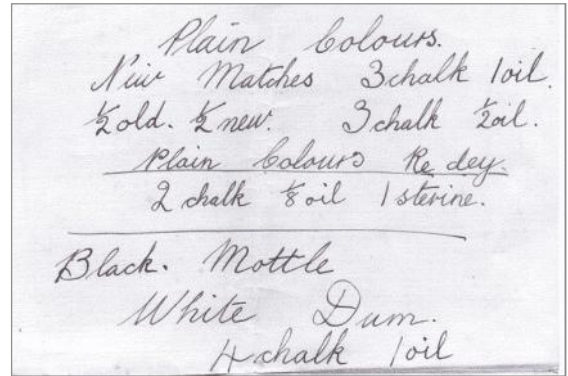 Plain Colours.
New Matches 3 chalk 1 oil.
½ old. ½ new. 3 chalk ½ oil.
Plain Colours Re dey.
2 chalk ⅛ oil 1 sterine.
Black. Mottle
White Dum.
4 chalk 1 oil